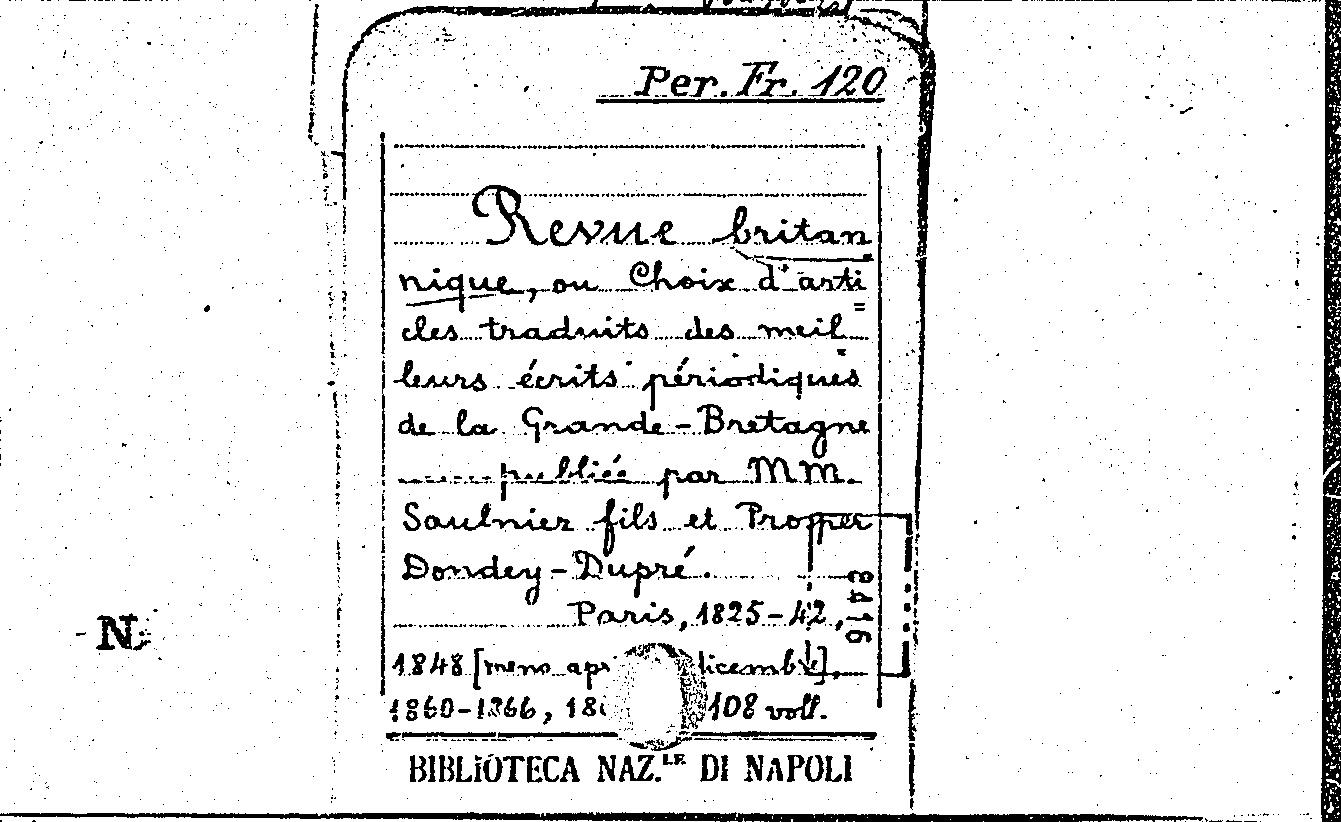 Per. Fr. 120
Revue britan
nique, ou Choix d'arti
cles traduits des meil
leurs écrits périodiques
de la Grande-Bretagne
publiée par MM.
Saulnier fils et Prosper
Dondey-Dupré.
Paris, 1825-42,
1848 [meno
1860-1866,
108 voll.
8416
N
BIBLIOTECA NAZ.LE DI NAPOLI